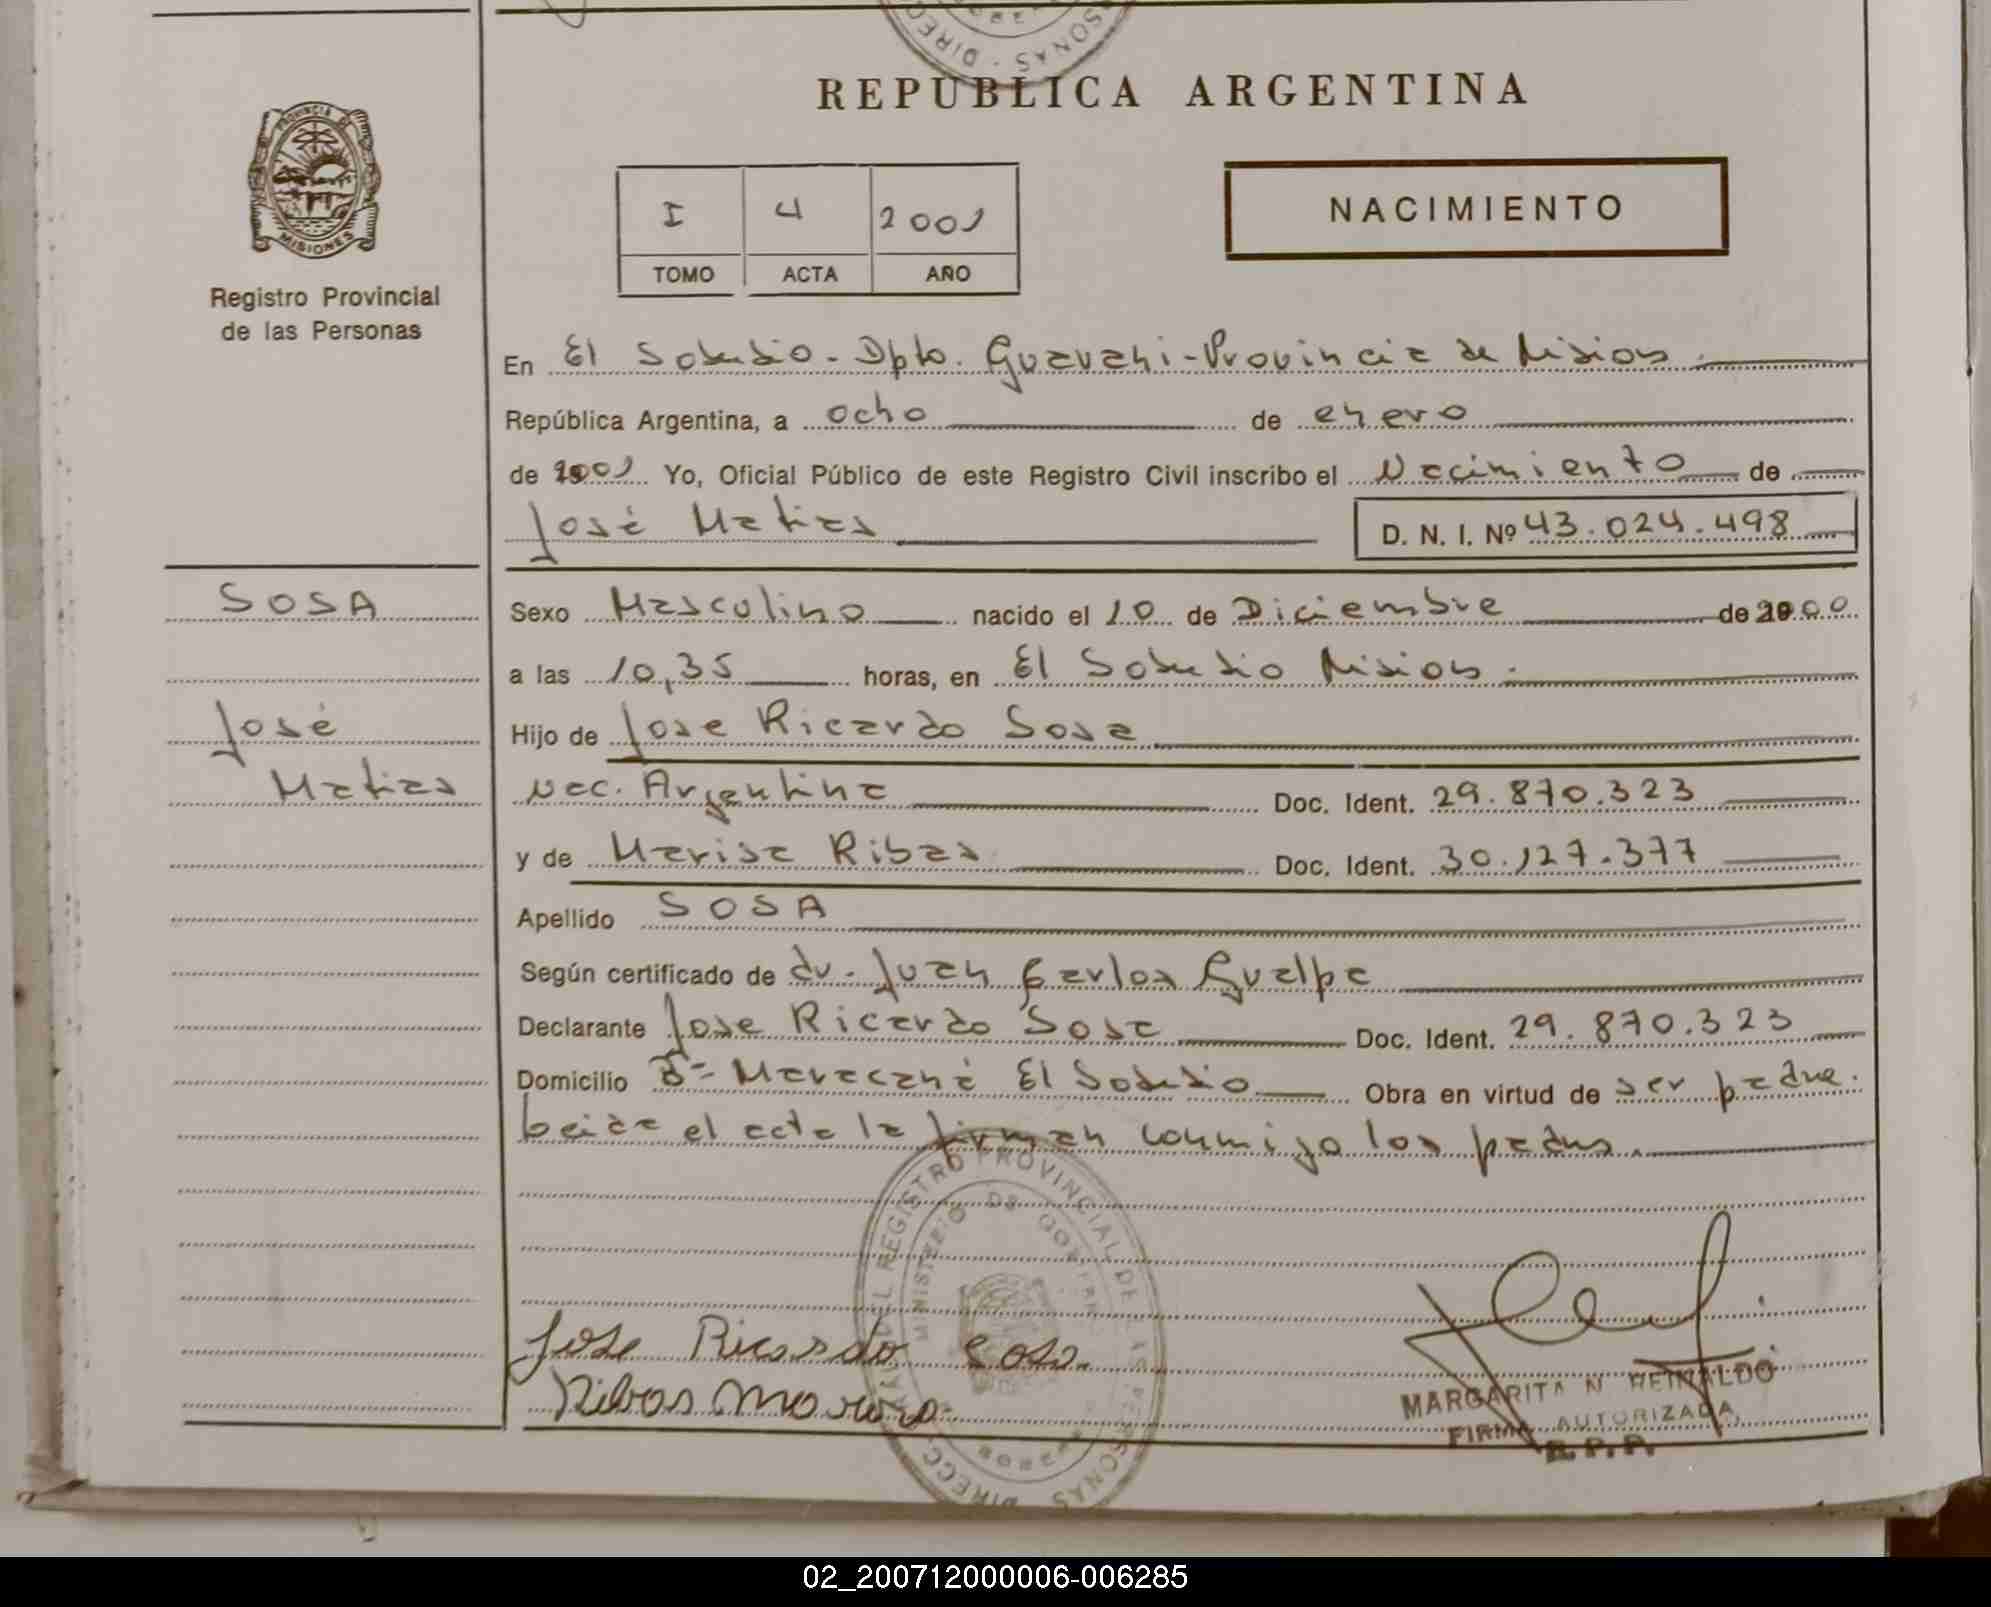 REPUBLICA ARGENTINA
PROVINCIA DE
MISIONES
Registro Provincial
de las Personas
I 4 2001
TOMO ACTA AÑO
NACIMIENTO
En El Soberbio - Dpto. Guarani - Provincia de Misiones.
República Argentina, a ocho de enero
de 2001 Yo, Oficial Público de este Registro Civil inscribo el Nacimiento de
José Matias D. N. I. Nº 43.024.498
SOSA
José
Matias
Sexo Masculino nacido el 10 de Diciembre de 2000
a las 10,35 horas, en El Soberbio Misiones.
Hijo de Jose Ricardo Sosa
nac. Argentina Doc. Ident. 29.870.323
y de Marisa Ribas Doc. Ident. 30.127.377
Apellido SOSA
Según certificado de dr. Juan Carlos Gualpa
Declarante Jose Ricardo Sosa Doc. Ident. 29.870.323
Domicilio Bº Maracaná El Soberbio Obra en virtud de ser padre.
Leida el acta la firman conmigo los padres.
REGISTRO PROVINCIAL DE LAS PERSONAS
MINISTERIO DE
Jose Ricardo Sosa
Ribas
MARGARITA N. REINALDO
FIRMA AUTORIZADA
R.P.P.
02_200712000006-006285